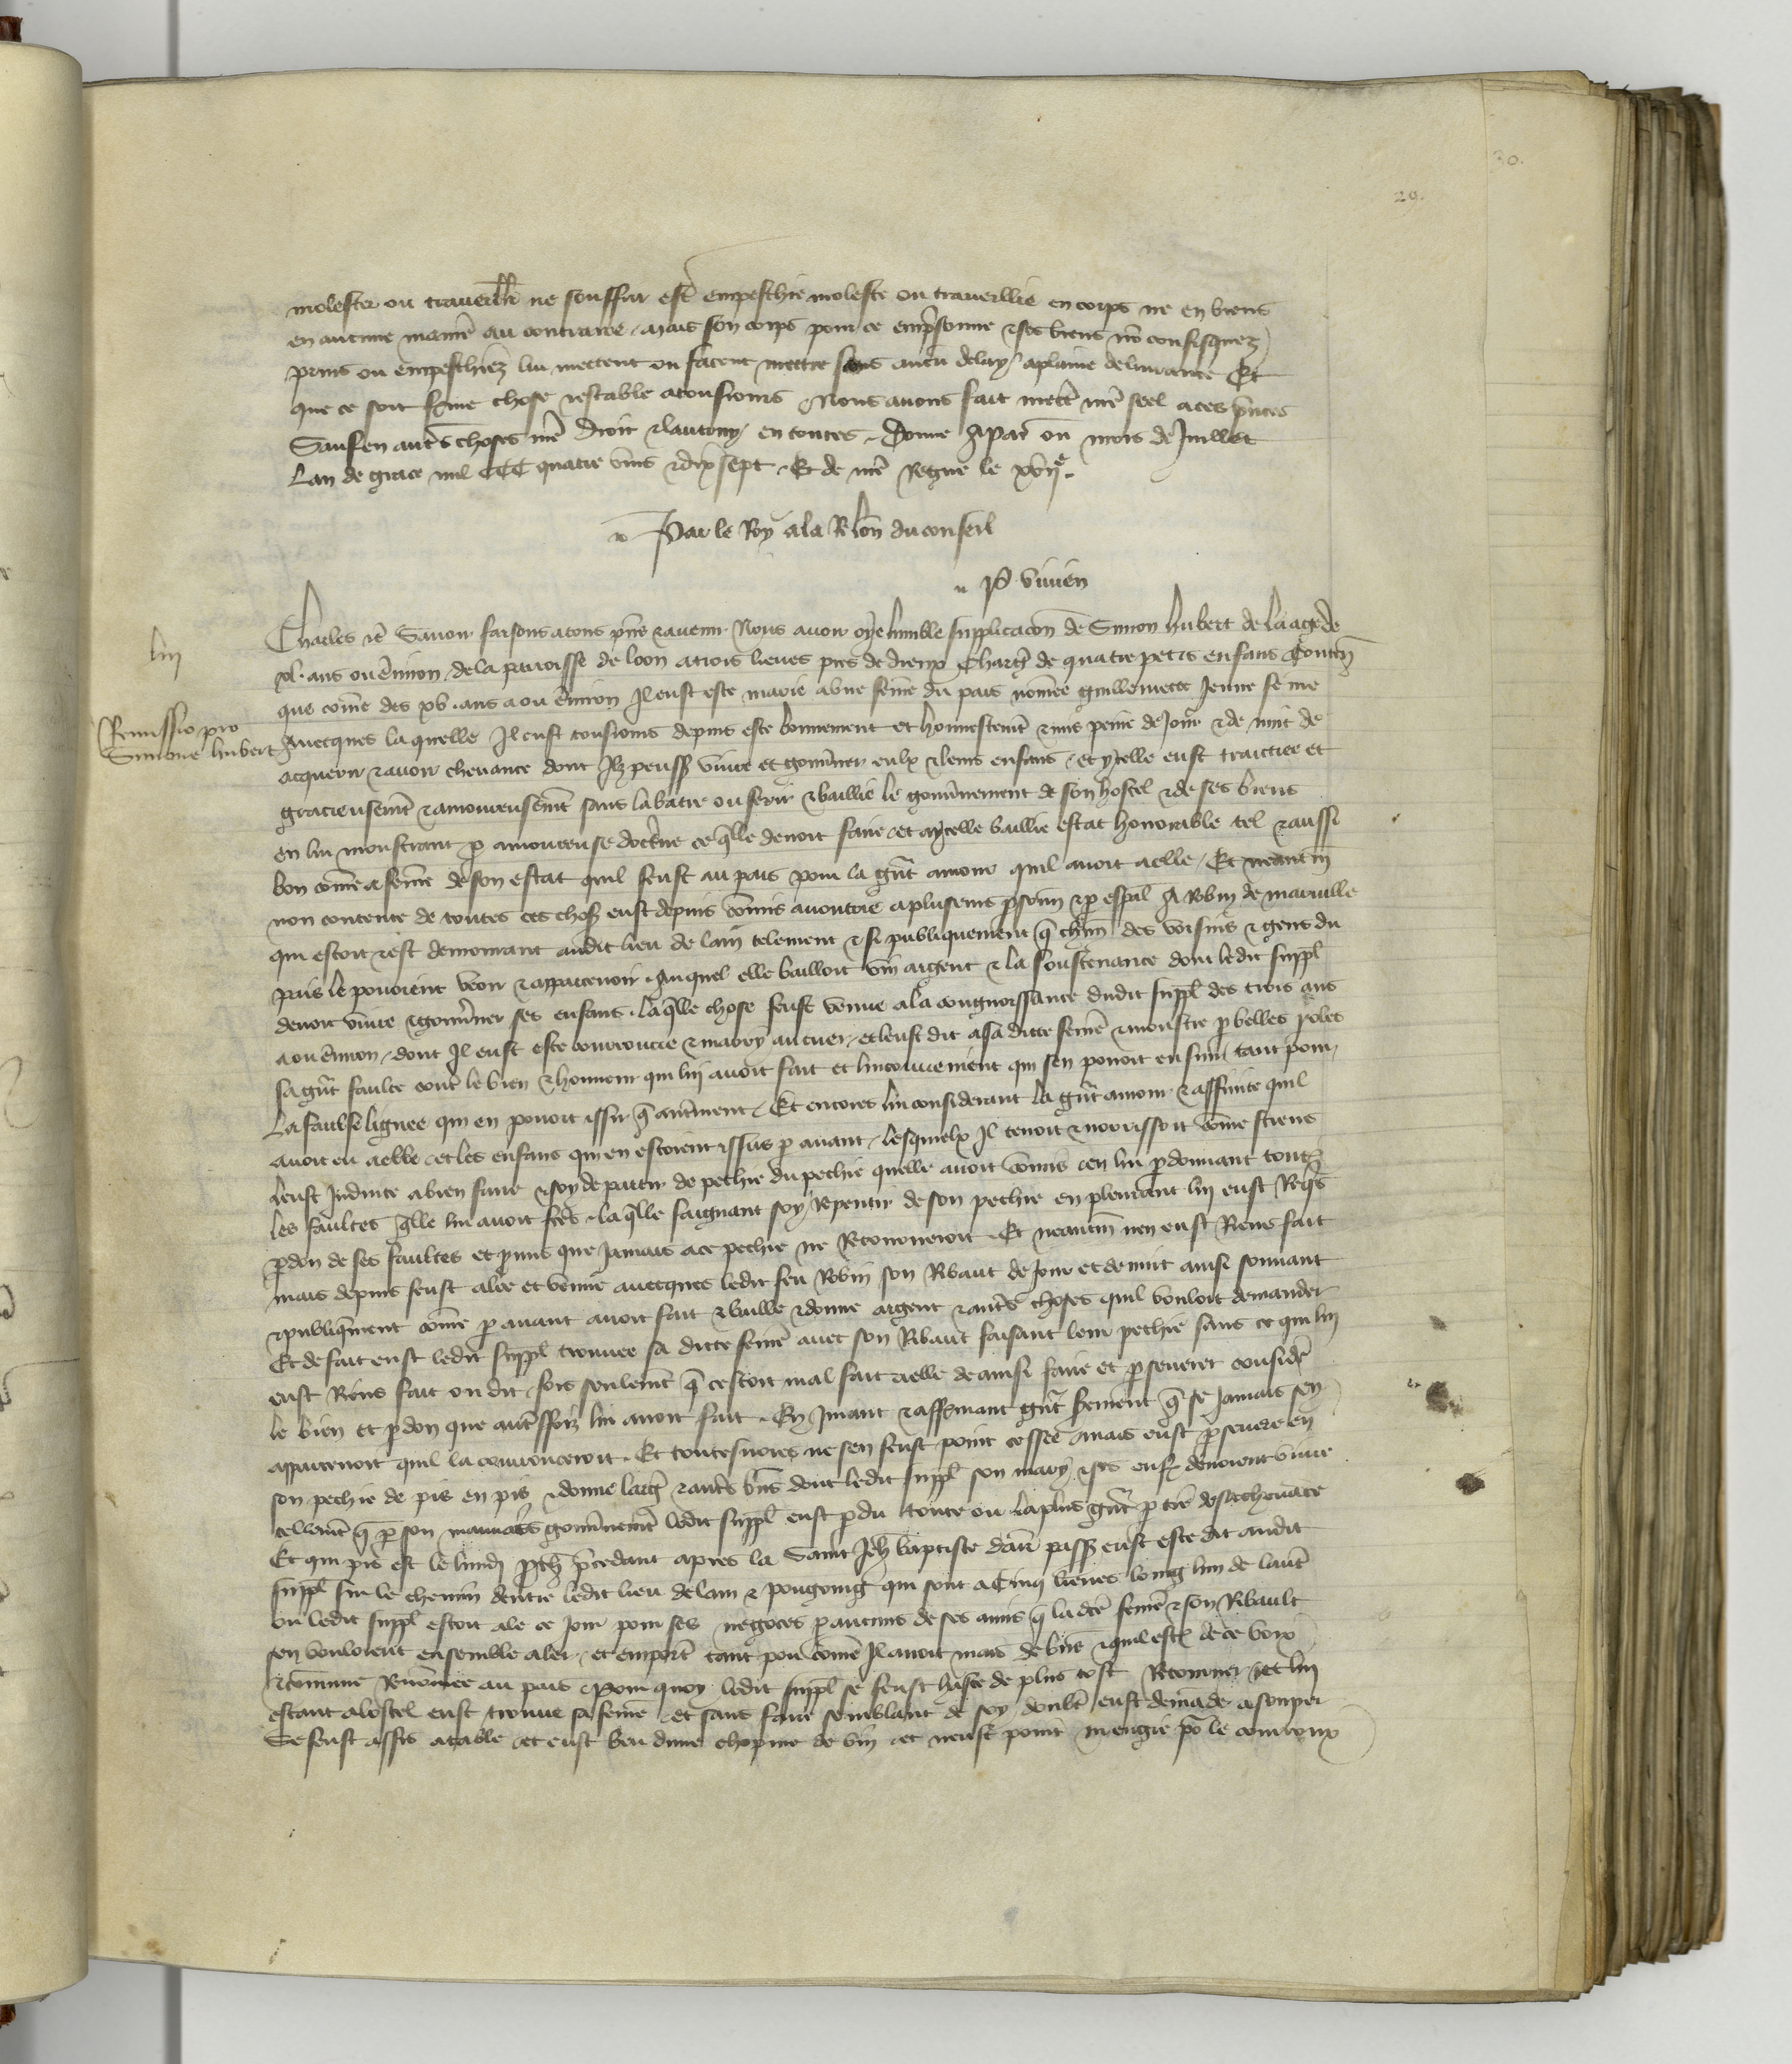 30.
29.
molester ou traveillier ne souffrir estre empeschie moleste ou traveillie en corps ne en biens
en aucune maniere au contraire mais son corps pour ce emprisonne et ses biens non confisquez
prins ou empeschiez lui mettent ou facent mettre sans aucun delay a plaine delivrance Et
que ce soit ferme chose et estable a tousiours Nous avons fait mettre nostre seel a ces presentes
Sauf en autres choses nostre droit et lautruy en toutes Donne a Paris ou mois de Juillet
Lan de grace mil CCC quatre vins et dix sept Et de nostre Regne le xviie
Par le Roy a la Relacion du conseil
Jo. Vivien
liij
Remissio pro
Simone hubert
Charles etc Savoir faisons a tous presens et avenir Nous avoir oye humble supplicacion de Simon hubert de laage de
xl ans ou environ de la parroisse de loon a trois lieues pres de dreux Chargie de quatre petis enfans Contenant
que comme des xv ans a ou environ Il eust este marie a une femme du pais nommee guillemette Jeune femme
Avecques laquelle Il eust tousiours depuis este bonnement et honnestement et mis peine de Jour et de nuit de
acquerir et avoir chevance dont Ilz peussent vivre et gouverner eulx et leurs enfans et ycelle eust traictiee et
gracieusement et amoureusement sans la batre ou ferir et baillie le gouvernement de son hostel et de ses biens
en lui monstrant par amoureuse doctrine ce quelle devoit faire et a ycelle baillie estat honorable tel et aussi
bon comme a femme de son estat quil feust au pais pour la grant amour quil avoit a elle Et neantmoins
non contente de toutes ces choses eust depuis commis avoutire a plusieurs personnes et par especial A Robin de marville
qui estoit et est demourant audit lieu de laon telement et si publiquement que chascun des voisins et gens du
pais le povoient veoir et appercevoir Auquel elle bailloit vin argent et la soustenance dont ledit suppliant
devoit vivre et gouverner ses enfans laquelle chose feust venue a la congnoissance dudit suppliant des trois ans
a ou environ dont Il eust este courroucie et marry au cuer et leust dit a sa dicte femme et monstre par belles paroles
sa grant faulte contre le bien et honneur qui lui avoit fait et linconvenient qui sen povoit ensuir tant pour
La faulse lignee qui en povoit issir que autrement Et encores lui considerant la grant amour et affinite quil
avoit eu a elle et les enfans qui en estoient issus par avant lesquelx Il tenoit et nourrissoit comme sciens
Leust Induite a bien faire et soy departir de pechie du pechie quelle avoit commis en lui pardonnant toutes
les faultes quelle lui avoit fctes laquelle faignant soy Repentir de son pechie en plourant lui eust Requis
pardon de ses faultes et promis que Jamais a ce pechie ne Retourneroit Et neantmoins nen eust Riens fait
mais depuis feust alee et venue avecques ledit feu Robin son Ribaut de Jour et de nuit aussi souvant
et publiquement comme par avant avoit fait et baillie et donne argent et autres choses quil vouloit demander
Et de fait eust ledit suppliant trouvee sa dicte femme avec son Ribaut faisant leur pechie sans ce qui lui
eust Riens fait ou dit fors seulement que cestoit mal fait a elle de ainsi faire et perseverer considere
le bien et pardon que autresfoiz lui avoit fait En Jurant et affermant grant serement que se Jamais sen
appercevoit quil la courrouceroit Et toutesvoies ne sen feust point cessee mais eust persevere en
son pechie de pis en pis et donne largent et autres biens dont ledit suppliant son mary et ses enfans devoient vivre
telement que par son mauvais gouvernement ledit suppliant eust perdu toute ou la plus grant partie de sa chevance
Et qui pis est le lundi prochain precedant apres la Saint Jehan baptiste derrenier passee eust este dit audit
suppliant sur le chemin dentre ledit lieu de laon et pongoing qui sont a Cinq lieues loing lun de lautre
ou ledit suppliant estoit ale ce Jour pour ses negoces par aucuns de ses amis que la dicte femme et son Ribault
sen vouloient ensemble aler et emporter tant pou comme Il avoit mais de biens et quil estoit de ce voix
et commune Renommee au pais Pour quoy ledit suppliant se feust haste de plus tost Retourner et lui
estant a lostel eust trouve sa femme et sans faire semblant de soy doubter eust demande a souper
Se feust assis a table et eust beu dune chopine de vin et neust point mengie pour le courroux